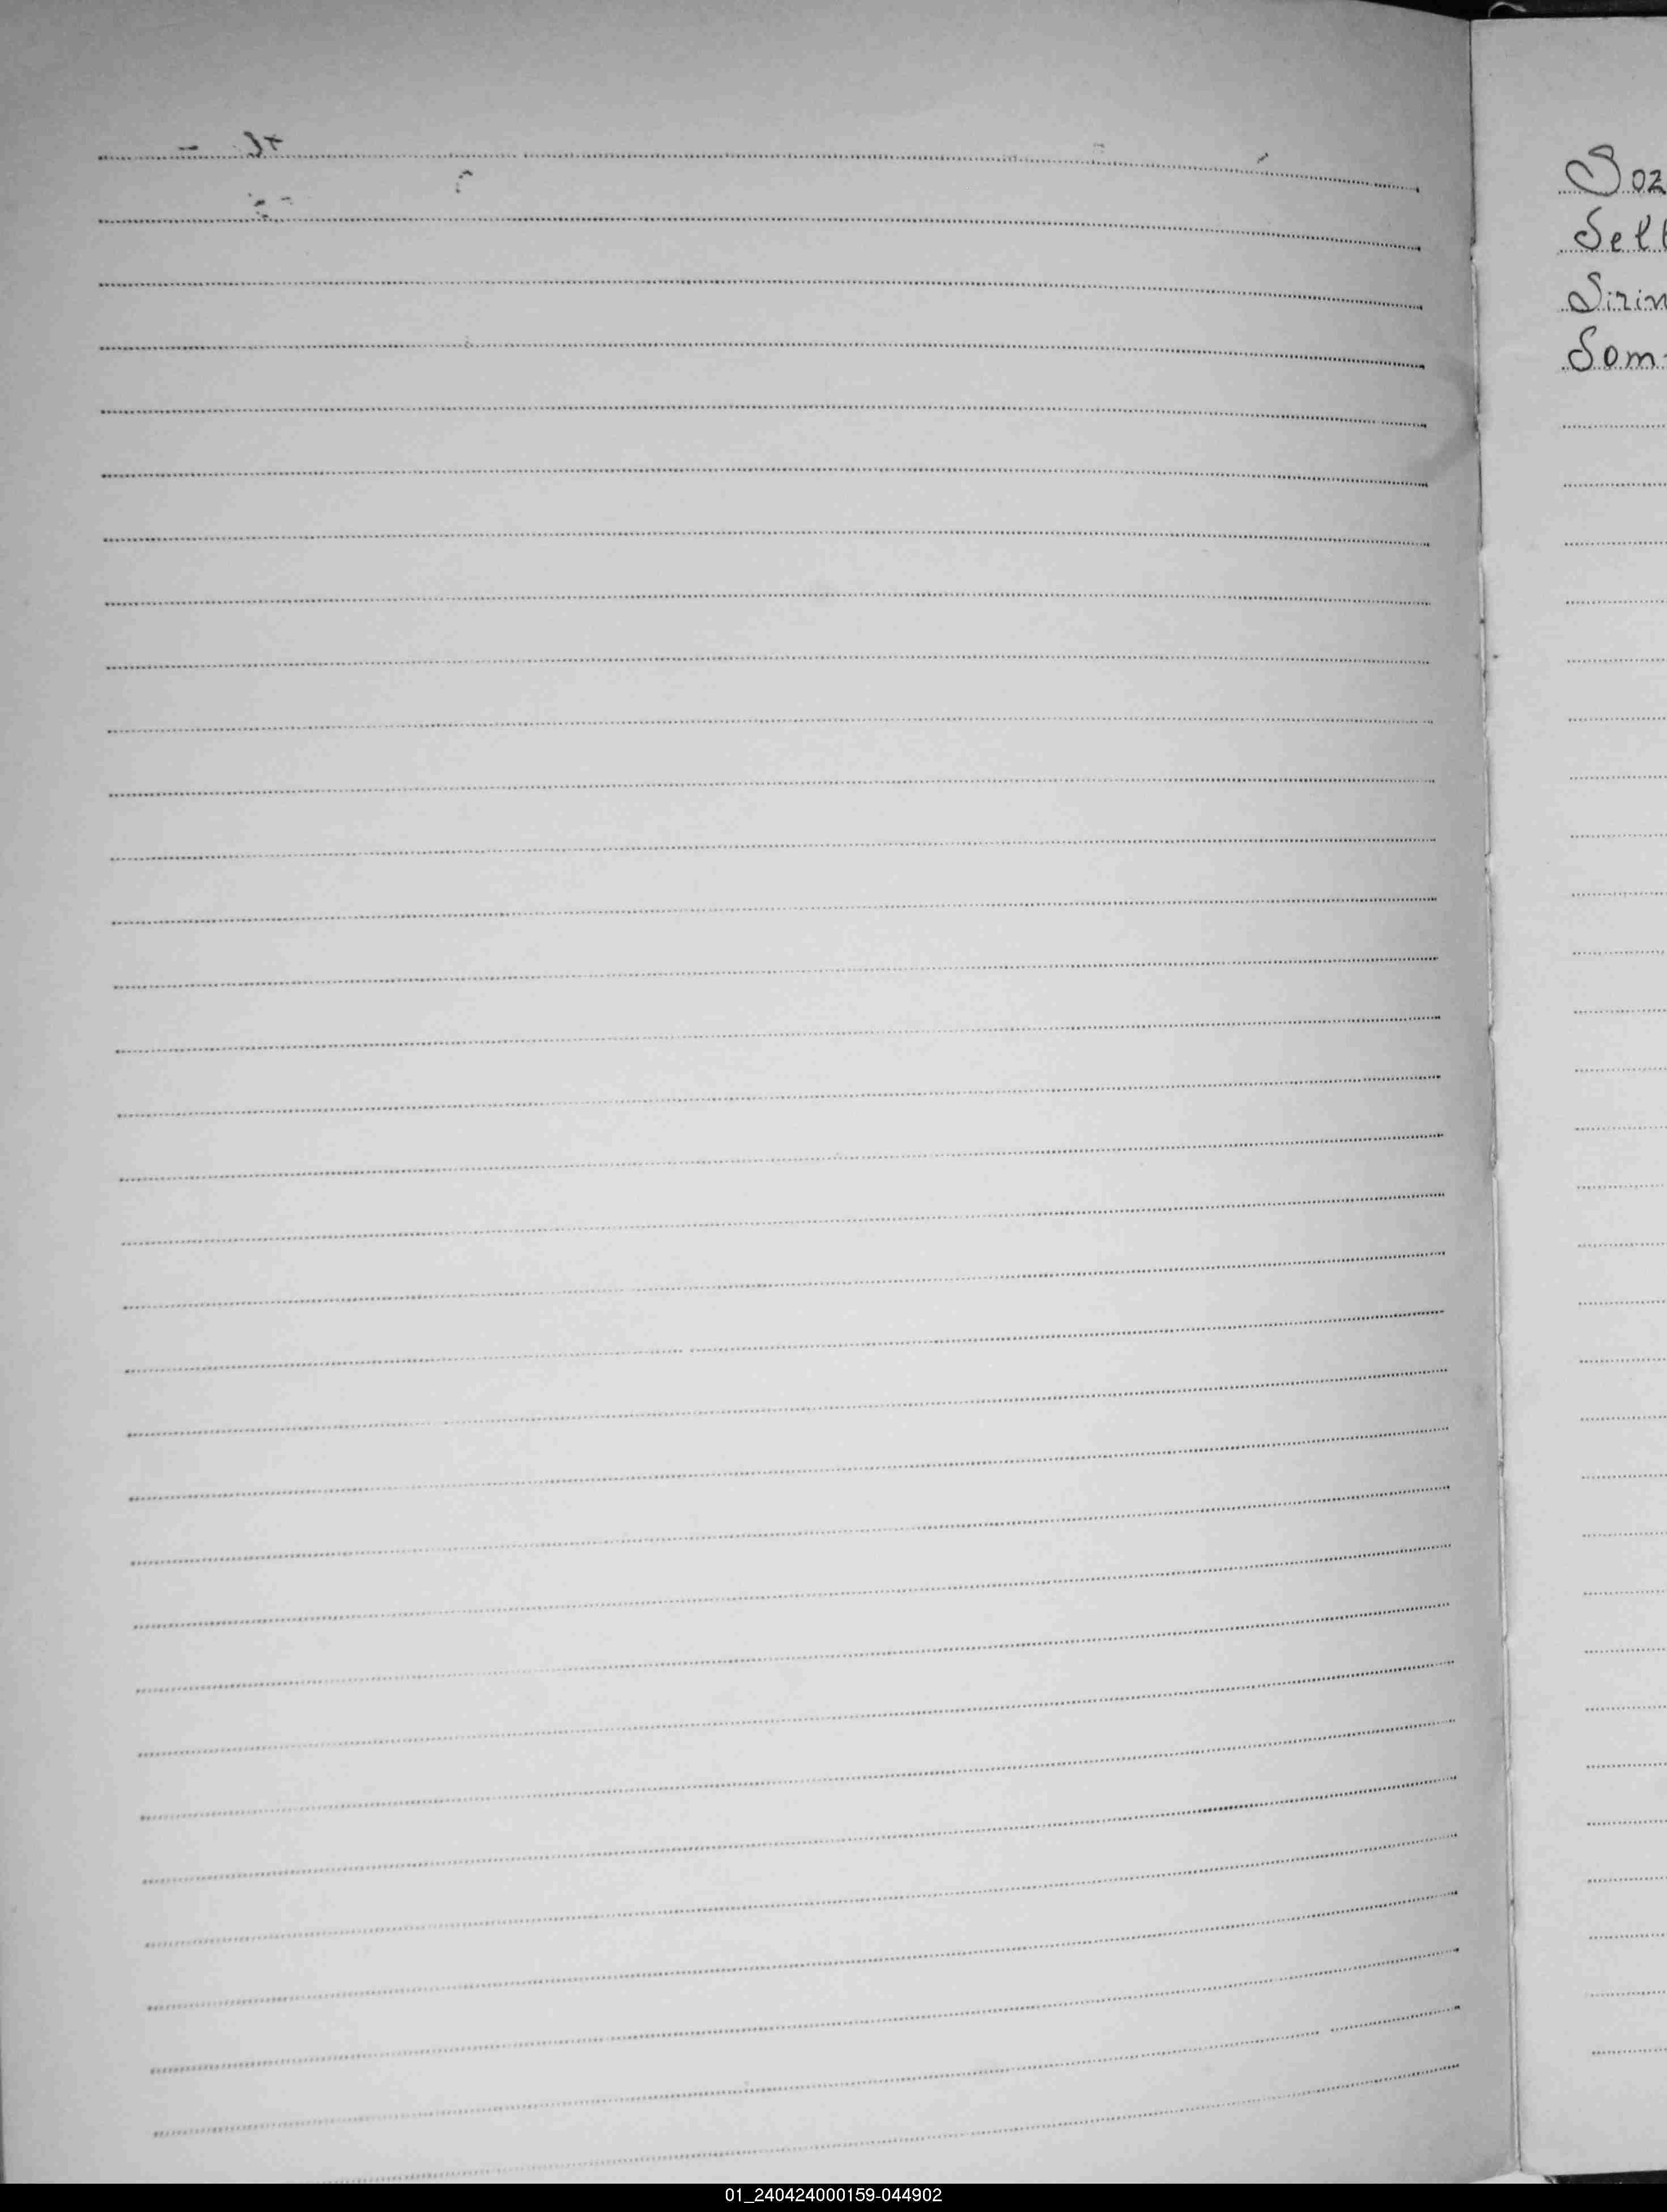 Soz
Sell
Sirin
Som
01_240424000159-044902